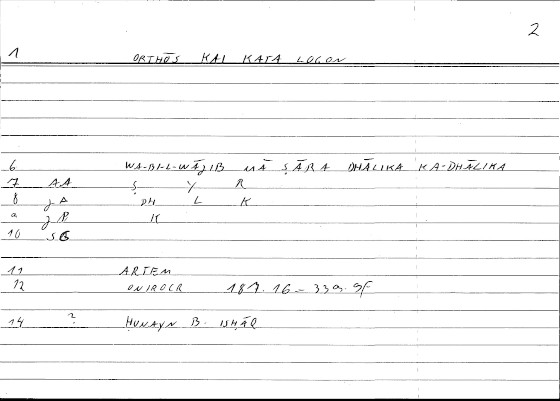 2
1 ORTHŌS KAI KATA LOGON
6 WA-BI-L-WĀǧIB MĀ ṢĀRA DHĀLIKA KA-DHĀLIKA
7 AA Ṣ Y R
8 ǧA DH L K
9 K
10 SG
11 ARTEM
12 ONIROCR 187.16 – 339.9f
14 ? ḤUNAYN B. ISḤĀQ